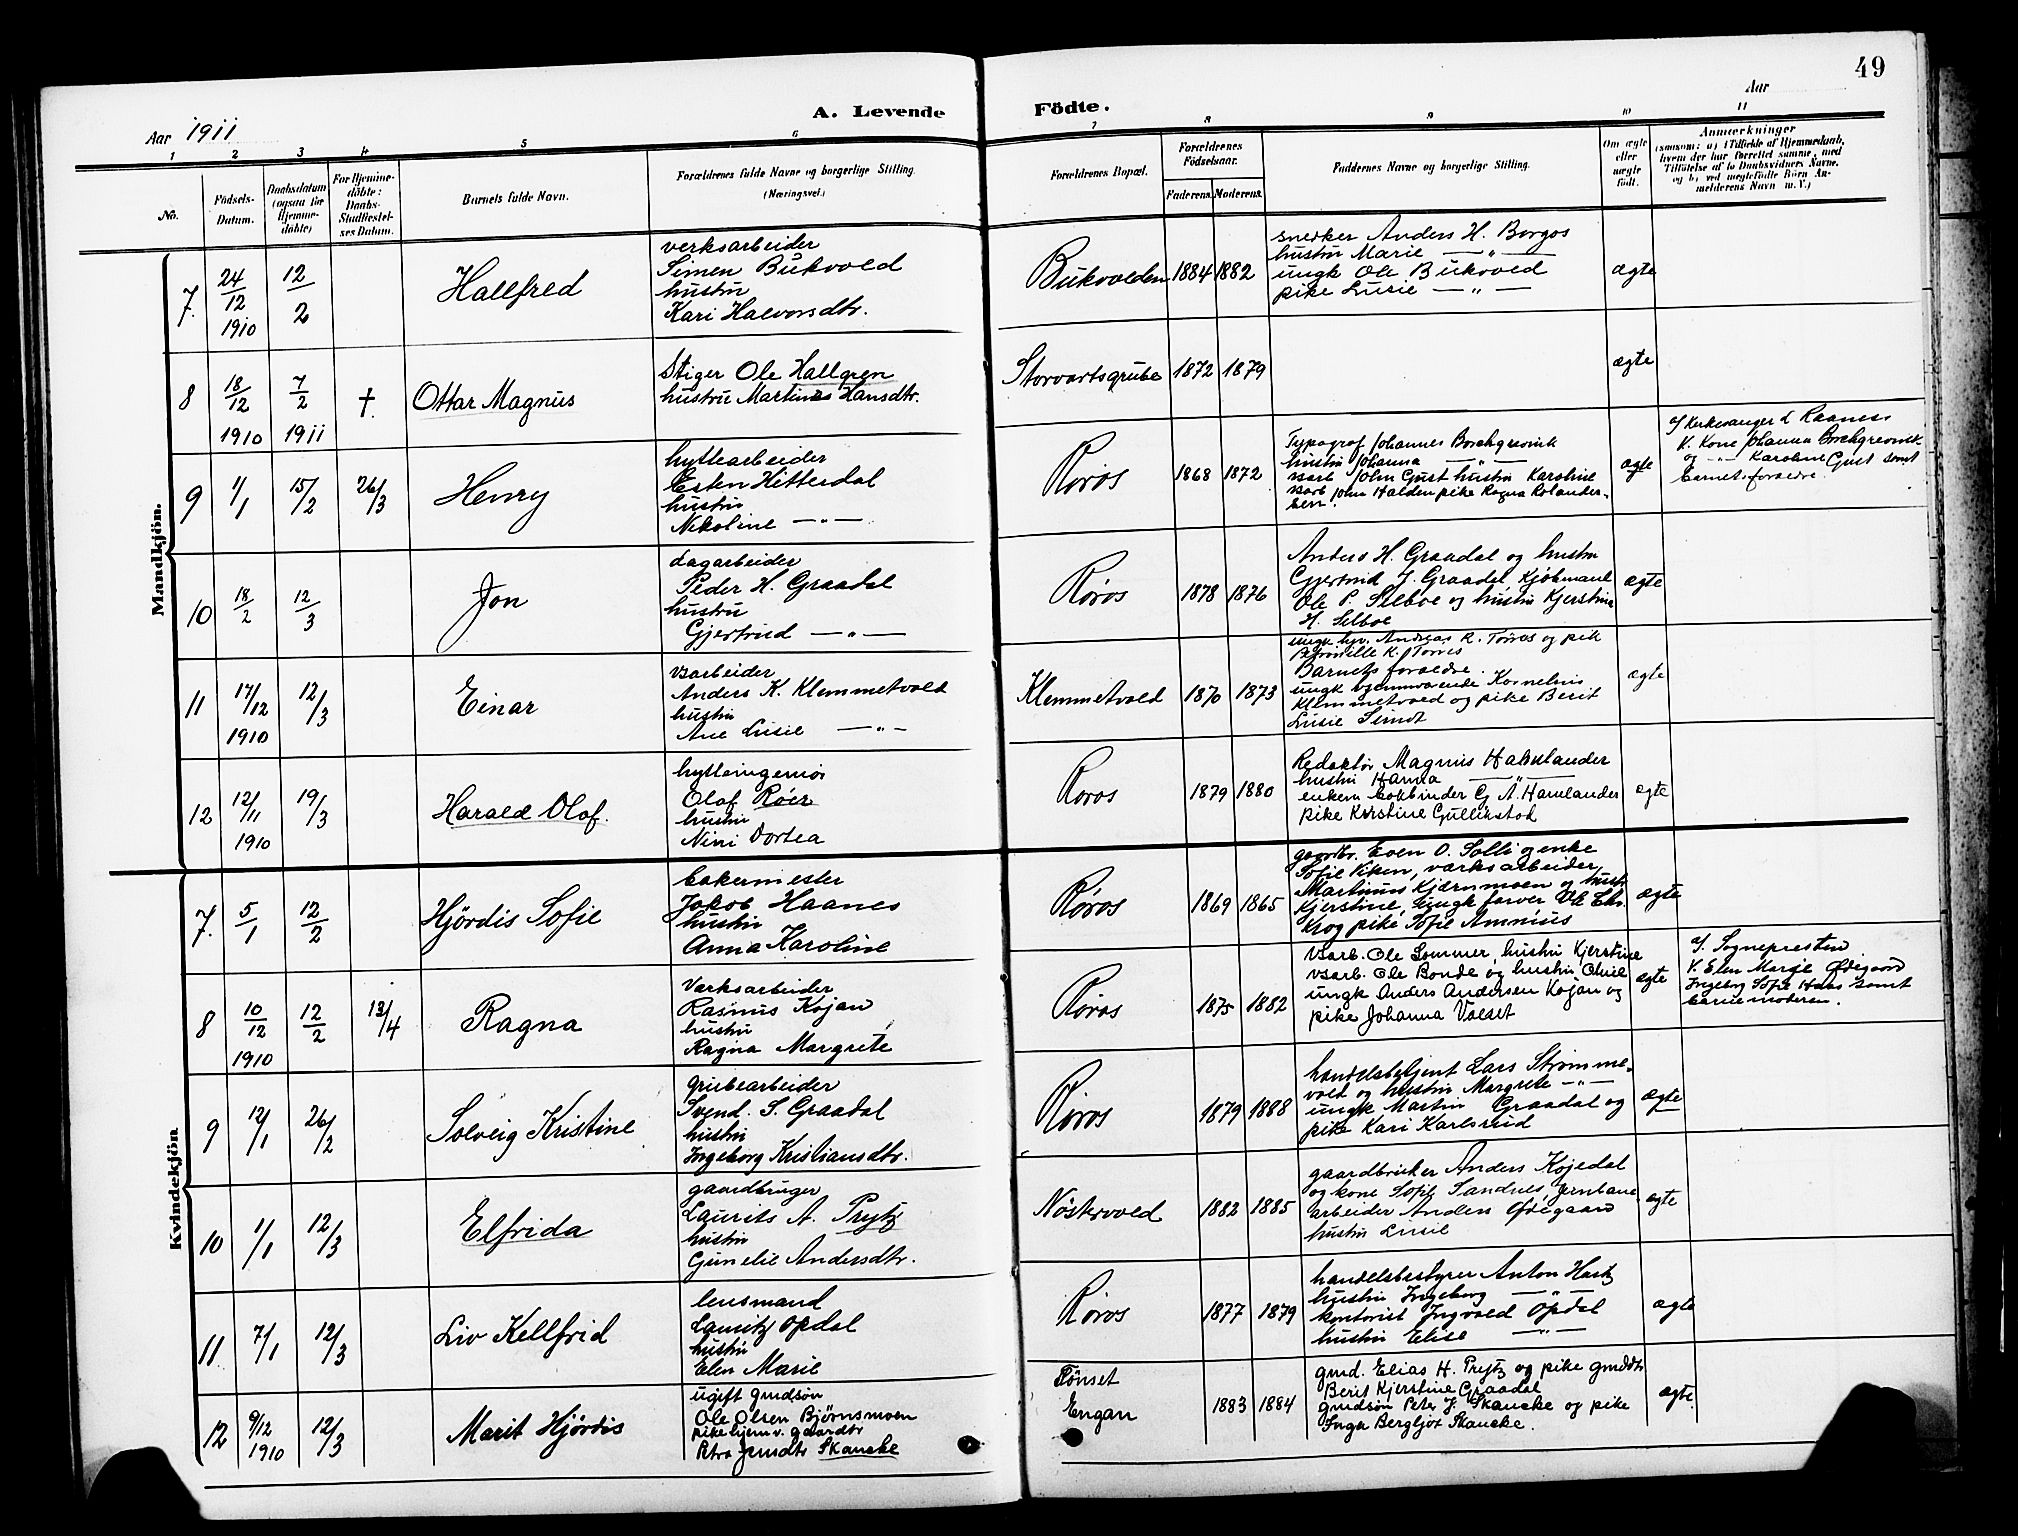 49
Aar 1911
A. Levende
Födte.
Aar
1 2 3 4 5 6 7 8 9 10 11
No.
Födsels-
Datum.
Daabsdatum
(ogsaa for
Hjemme-
döbte)
For Hjemme-
döbte:
Daabs-
Stadfæstel-
ses Datum.
Barnets fulde Navn.
Forældrenes fulde Navne og borgerlige Stilling.
(Næringsvei.)
Forældrenes Bopæl.
Forældrenes
Födselsaar.
Faderens. Moderens.
Faddernes Navne og borgerlige Stilling.
Om ægte
eller
uægte
født.
Anmærkninger
(saasom: a) i Tilfælde af Hjemmedaab,
hvem der har forrettet samme, med
Tilföielse af to Daabsvidners Navne,
og b) ved uægtefödte Börn An-
melderens Navn m. V.)
Mandkjön.
7. 24/12 1910 12/2
Hallfred
verksarbeider
Simen Bukvold
hustru
Kari Halvorsdtr.
Bukvolden 1884 1882
snekker Anders H. Borgos
hustru Marie — " —
ungk Ole Bukvold
pike Lusie — " —
ægte
8 18/12 1910 7/2 1911 †.
Ottar Magnus
Stiger Ole Hallgren
hustru Martines Hansdtr.
Storvartsgrube 1872 1879
ægte
9 1/1 15/2 26/3
Henry
hyttearbeider
Esten Hitterdal
hustru
Nikoline — " —
Røros 1868 1872
Typograf Johannes Borchgrevink
hustru Johanna — " —
varb John Gust hustru Karoline
varb John Halden pike Ragna Rolander-
sen.
ægte
a/ Kirkesanger L Raaness
V. Kone Johanna Borchgrevink
og — " — Karoline Gust samt
barnets foraedre.
10 18/2 12/3
Jon
dagarbeider
Peder H. Graadal
hustru
Gjertrud — " —
Røros 1878 1876
Anders H. Graadal og hustru
Gjertrud J. Graadal Kjøbmand
Ole P. Selboe og hustru Kjerstina
H. Selboe
ægte
11 17/12 1910 12/3
Einar
varbeider
Anders K. Klemmetvold
hustru
Ane Lusie — " —
Klemmetvold 1870 1873
ungk hjv. Andreas K. Torres og pik
Petronille K. Torres
Barnets foraldre.
ungk hjemmvarende Kornelius
Klemmetvold og pike Berit
Lusie Sundt
ægte
12 12/11 1910 19/3
Harald Olaf.
hytteingeniør
Olaf Røer
hustru
Nini Dortea
Røros 1879 1880
Redaktør Magnus Hamlander
hustru Hanna — " —
enkem bokbinder G. A. Hamlander
pike Kirstine Gullikstad
ægte
Kvindekjön
7. 5/1 12/2
Hjördis Sofie
bakermester
Jakob Haanes
hustru
Anna Karoline
Røros 1869 1865
gaardbr. Even O. Solli og enke
Sofie Viken, værksarbeider
Martinus Kjernmoen og hustr
Kjerstine, ungk farver Ole Chr.
Krog pike Sofie Amnéus
ægte
8 10/12 1910 12/2 13/4
Ragna
Værksarbeider
Rasmus Kojan
hustru
Ragna Margrete
Røros 1875 1882
varb. Ole Sommer, hustru Kjerstine
varb. Ole Bonde og hustru Oline
ungk Anders Andersen Kojan og
pike Johanna Valset
ægte
a/. Sognepresten
V. Elen Marie Ødegaard
Ingeborg Sofie Haas samt
barnemoderen.
9 12/1 26/2
Solveig Kristine
grubearbeider
Svend. S. Graadal
hustru
Ingeborg Kristiansdtr.
Røros 1879 1888
handelsbetjent Lars Strømme-
vold og hustru Margrete — " —
ungk Martin Graadal og
pike Kari Karlsrud
ægte
10 1/1 12/3
Elfrida
gaardbruger
Laurits A. Prytz
hustru
Gunelie Andersdtr.
Nøstervold 1882 1885
gaardbruker Anders Kojedal
og kone Sofie Sandnes, jernbane-
arbeider Anders Ødegaard
hustru Lusie
ægte
11 7/1 12/3
Liv Kellfrid
lensmand
Lauritz Opdal
hustru
Elen Marie
Røros 1877 1879
handelsbestyrer Anton Hartz
hustru Ingeborg — " —
kontorist Ingvald Opdal
hustru Elise — " —
ægte
12 9/12 1910 12/3
Marit Hjördis
ugift gmdsøn
Ole Olsen Bjørnsmoen
pike hjem v. gaardtr
Petra Jensdtr Skancke
Tønset
Engan
1883 1884
gmd. Elias H. Prytz og pike gmddtr
Berit Kjerstine Graadal
gmdsøn Peter J. Skancke og pike
Inga Bergljot Skancke.
ægte